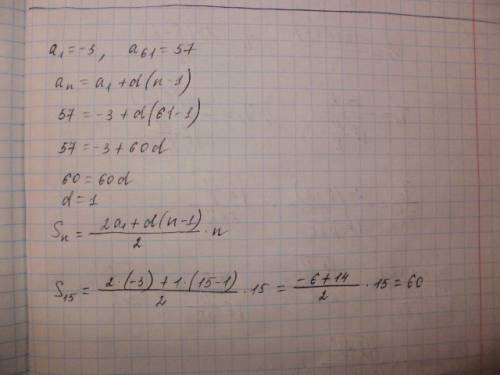 a₁=-3, a₆₁=57
aₙ=a₁+d(n-1)
57=-3+d(61-1)
57=-3+60d
60=60d
d=1
Sₙ= (2a₁+d(n-1))/2 · n
S₁₅= (2·(-3)+1·(15-1))/2 ·15 = (-6+14)/2 ·15=60